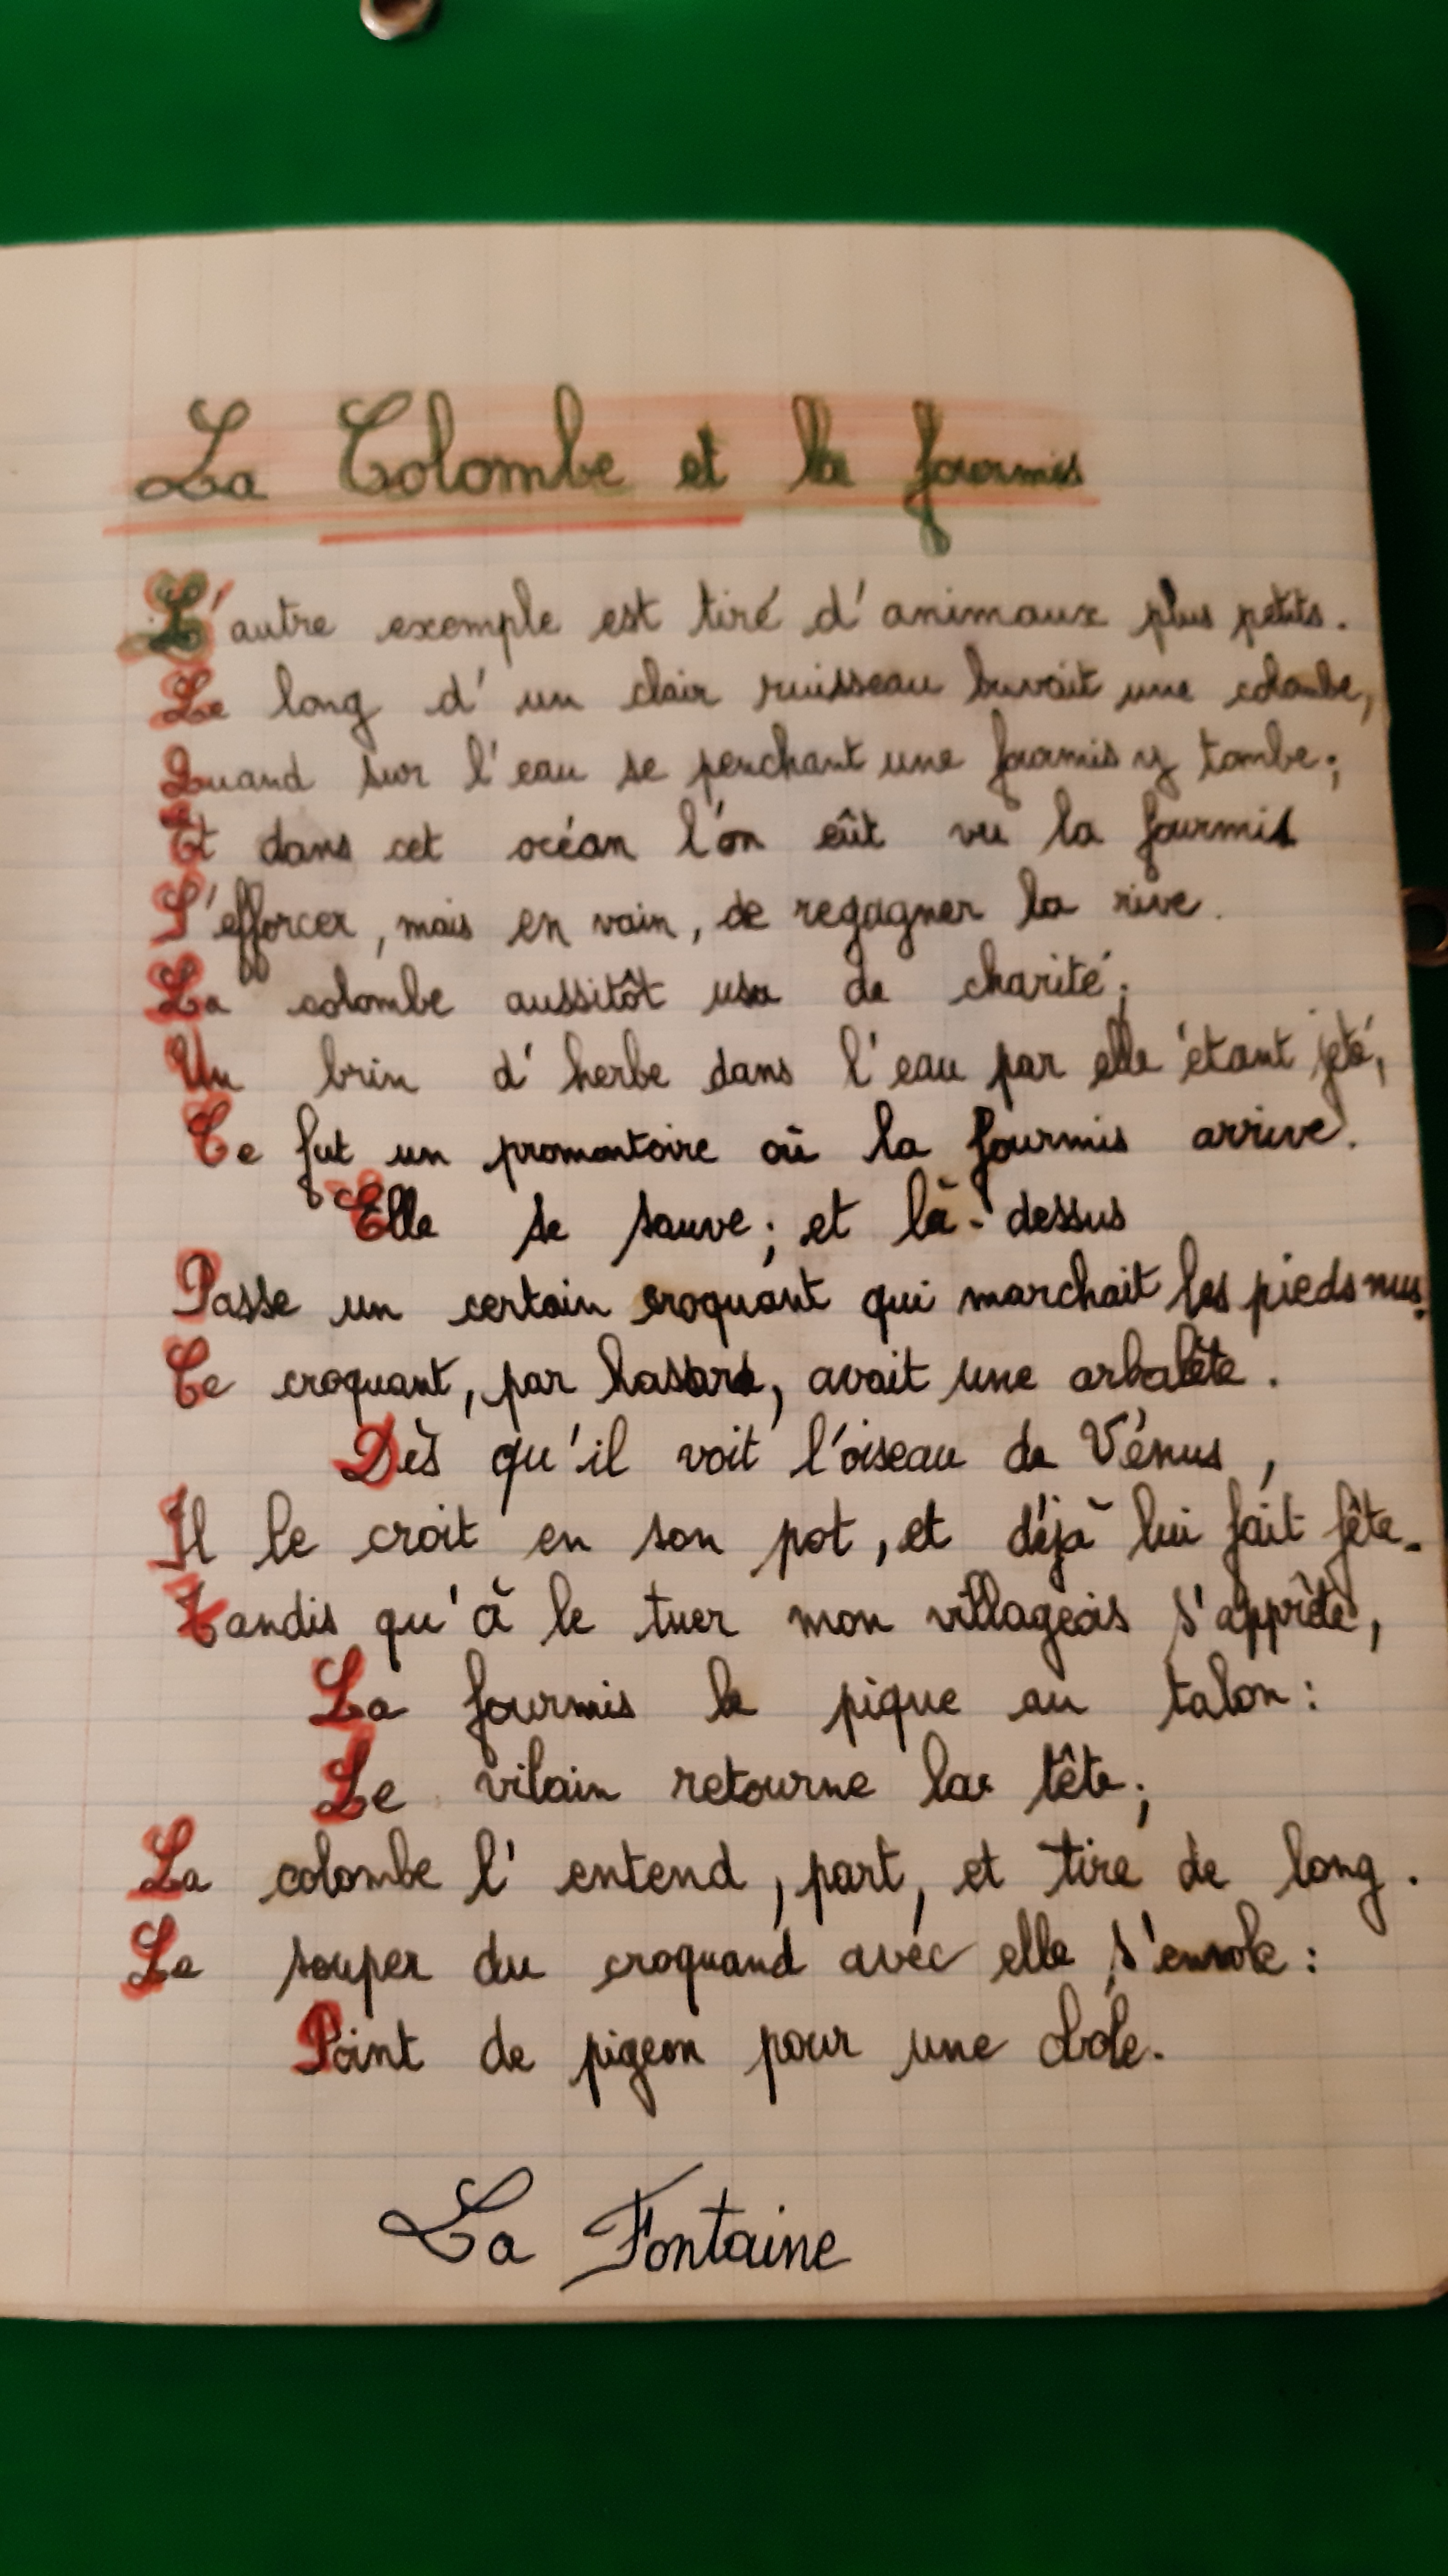 La Colombe et la fourmis
L'autre exemple est tiré d'animaux plus petits.
Le long d'un clair ruisseau buvait une colombe,
Quand sur l'eau se penchant une fourmis y tombe;
Et dans cet océan l'on eût vu la fourmis
S'efforcer, mais en vain, de regagner la rive.
La colombe aussitôt usa de charité;
Un brin d'herbe dans l'eau par elle étant jeté,
Ce fut un promontoire où la fourmis arrive.
Elle se sauve; et là-dessus
Passe un certain croquant qui marchait les pieds nus.
Ce croquant, par hasard, avait une arbalète.
Dès qu'il voit l'oiseau de Vénus,
Il le croit en son pot, et déjà lui fait fête.
Tandis qu'à le tuer mon villageois s'apprête,
La fourmis le pique au talon:
Le vilain retourne la tête;
La colombe l'entend, part, et tire de long.
Le souper du croquand avec elle s'envole:
Point de pigeon pour une obole.
La Fontaine